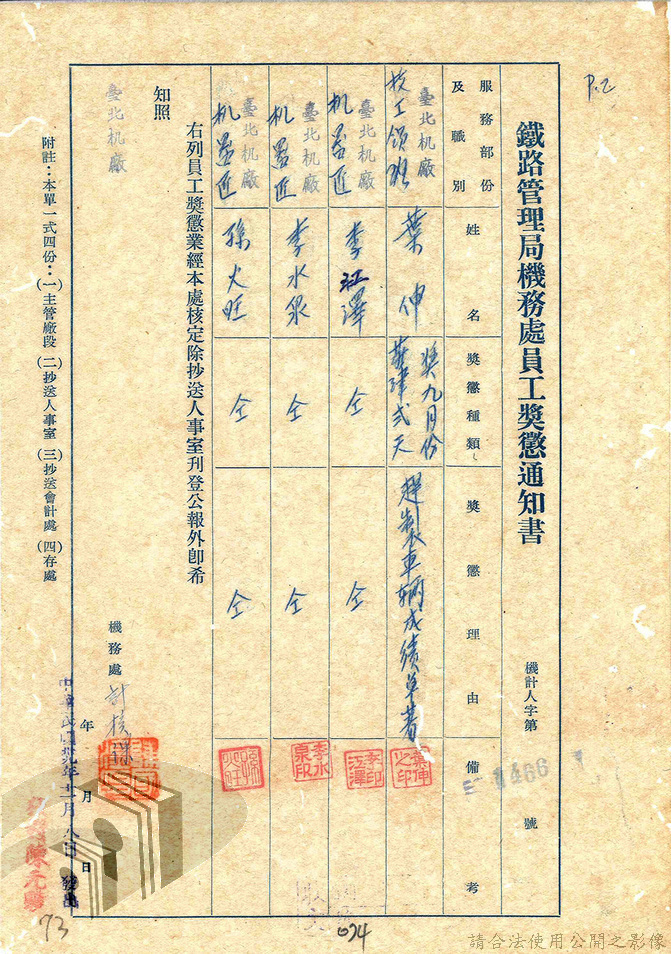 P.2
鐵路管理局機務處員工獎懲通知書
機計人字第 1466 號
服務部份及職別
姓名
獎懲種類
獎懲理由
備考
臺北机廠
技工領班
葉伸
獎九月份
薪津弍天
趕製車輛成績卓著
葉伸之印
臺北机廠
机器匠
李江澤
仝
仝
李江澤印
臺北机廠
机器匠
李水泉
仝
仝
李水泉印
臺北机廠
机器匠
孫火旺
仝
仝
孫火旺
右列員工獎懲業經本處核定除抄送人事室刊登公報外卽希
知照
臺北机廠
機務處
計核課
年 月 日
中華民國卅九年十二月八日發出
附註：本單一式四份：(一)主管廠段 (二)抄送人事室 (三)抄送會計處 (四)存處
73
074
請合法使用公開之影像